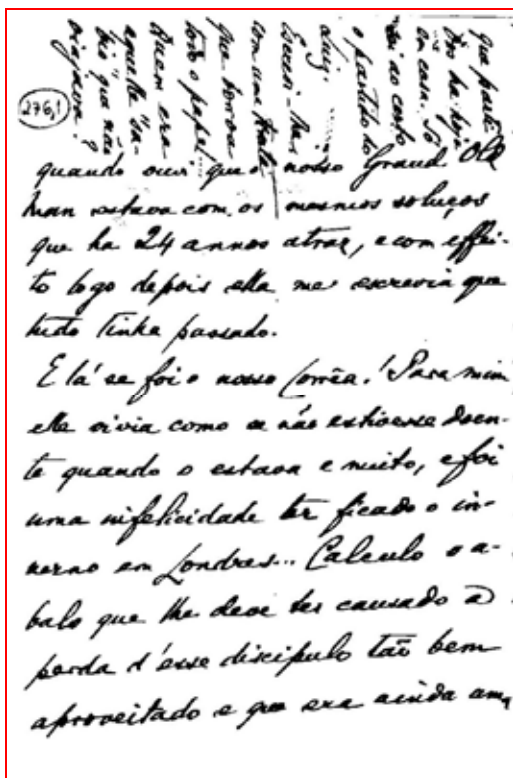 276,1
que partiu
há hoje
em casa. Só
ao certo
o partido do
Luiz.
com uma
que borra
todo o papel.
Quem era
aquelle "sa-
bio" que não
viajava?
quando ouvi que o nosso Grand Old
Man estava com os mesmos soluços
que ha 24 annos atraz, e com effei-
to logo depois ella me escrevia que
tudo tinha passado.
E lá se foi o nosso Corrêa! Para mim
elle vivia como se não estivesse doen-
te quando o estava e muito, e foi
uma infelicidade ter ficado o in-
verno em Londres... Calculo o a-
balo que lhe deve ter causado a
perda d'esse discipulo tão bem
aproveitado e que era ainda